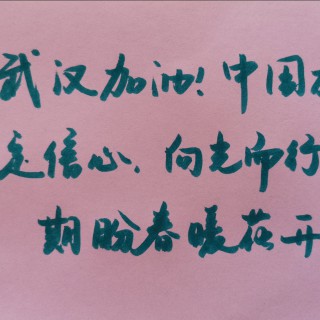 武汉加油!中国
定信心、向光而行
期盼春暖花开